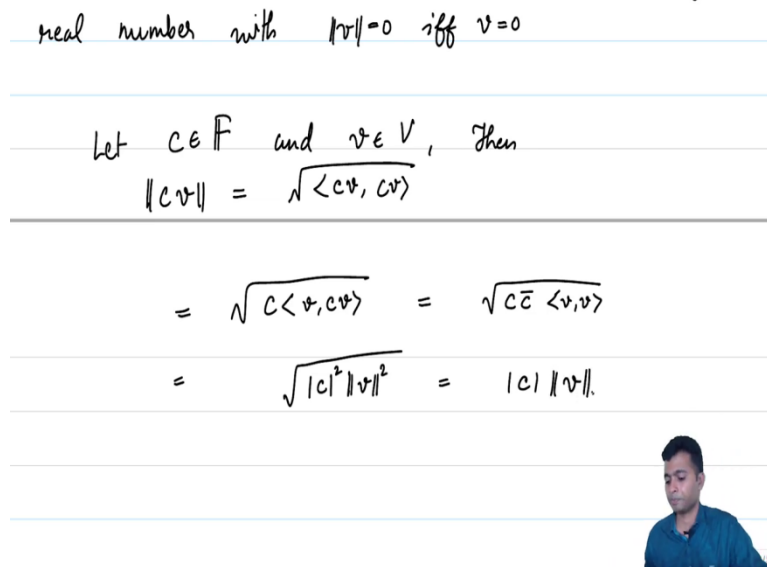 real number with ||v||=0 iff v=0
Let c ∈ 𝔽 and v ∈ V, Then
||cv|| = √<cv, cv>
= √c<v, cv> = √cc̄ <v,v>
= √|c|²||v||² = |c| ||v||.